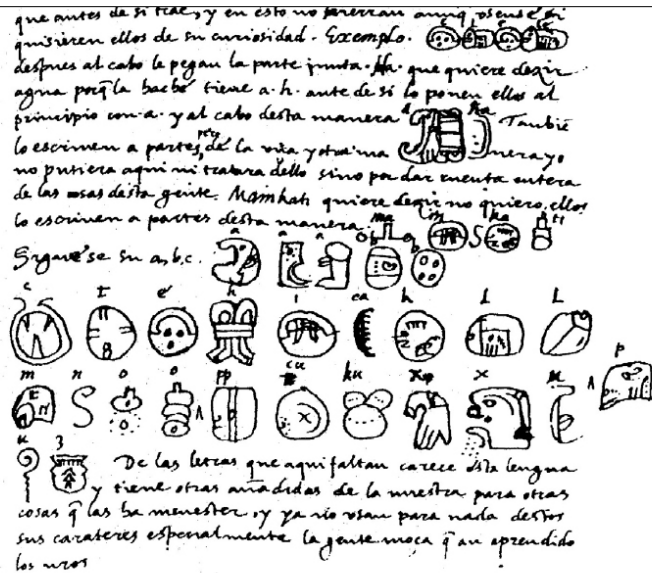 que antes de si trae, y en esto no
quisieren ellos de su curiosidad. Exemplo.
despues al cabo le pegan la parte junta. Ha. que quiere dezir
agua porq̃ la hache tiene a. h. ante de si lo ponen ellos al
principio con a. y al cabo desta manera Tambiē
lo escriven a partes, pero de la una y otra ma nera yo
no pusiera aqui ni tratara dello sino por dar cuenta entera
de las cosas desta gente. Mainkati quiere dezir no quiero, ellos
lo escriven a partes desta manera. ma i n ka ti
Siguese su a, b, c. a a a b b
c t e h i ca k l L
m n o o pp cu ku x x u p
u z De las letras que aqui faltan carece esta lengua
y tiene otras añadidas de la nuestra para otras
cosas q̃ las ha menester, y ya no usan para nada destos
sus carateres especialmente la gente moça q̃ an aprendido
los nros